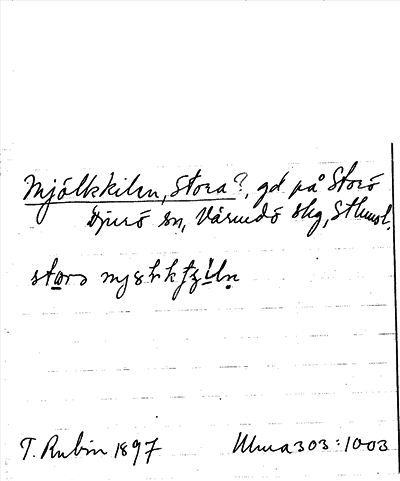 Mjölkkilen, Stora?, gd på Storö
Djurö sn, Värmdö skg, Sthms l.
T. Rubin 1897 Ulma 303:1003